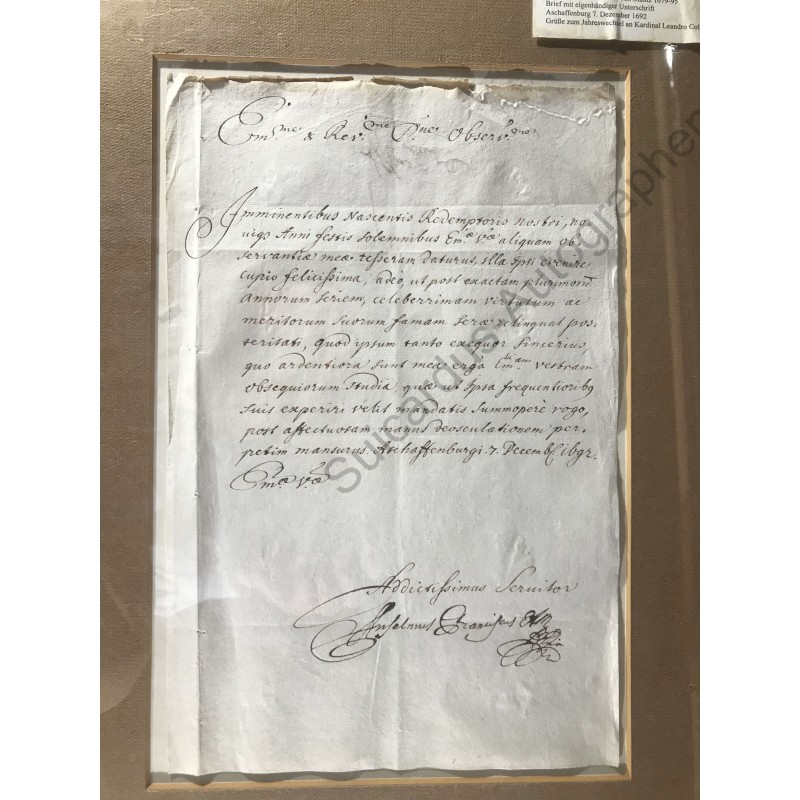 Mainz 1679-95
Brief mit eigenhändiger Unterschrift
Aschaffenburg 7. Dezember 1692
Grüße zum Jahreswechsel an Kardinal Leandro Col
Em.me & Rev.me D.ne Observ.me
Imminentibus Nascentis Redemptoris nostri, no-
uiqȝ Anni festis solemnibus Em.æ V.æ aliquam ob
servantiæ meæ tesseram daturus, illa Ipsi evenire
cupio felicissima, adeò, ut post exactam plurimorũ
Annorum seriem, celeberrimam virtutum ac
meritorum suorum famam seræ relinquat pos-
teritati, quod ipsum tanto exequor sincerius,
quo ardentiora sunt mea erga Em.tiam vestram
obsequiorum studia, quæ ut Ipsa frequentioribȝ
suis experiri velit mandatis summoperè rogo,
post affectuosam manus deosculationem per-
petim mansurus. Aschaffenburgi. 7. Decemb. 1692.
Em.æ V.æ
Addictissimus Servitor
Anselmus Franciscus
Sulcardus Autographen